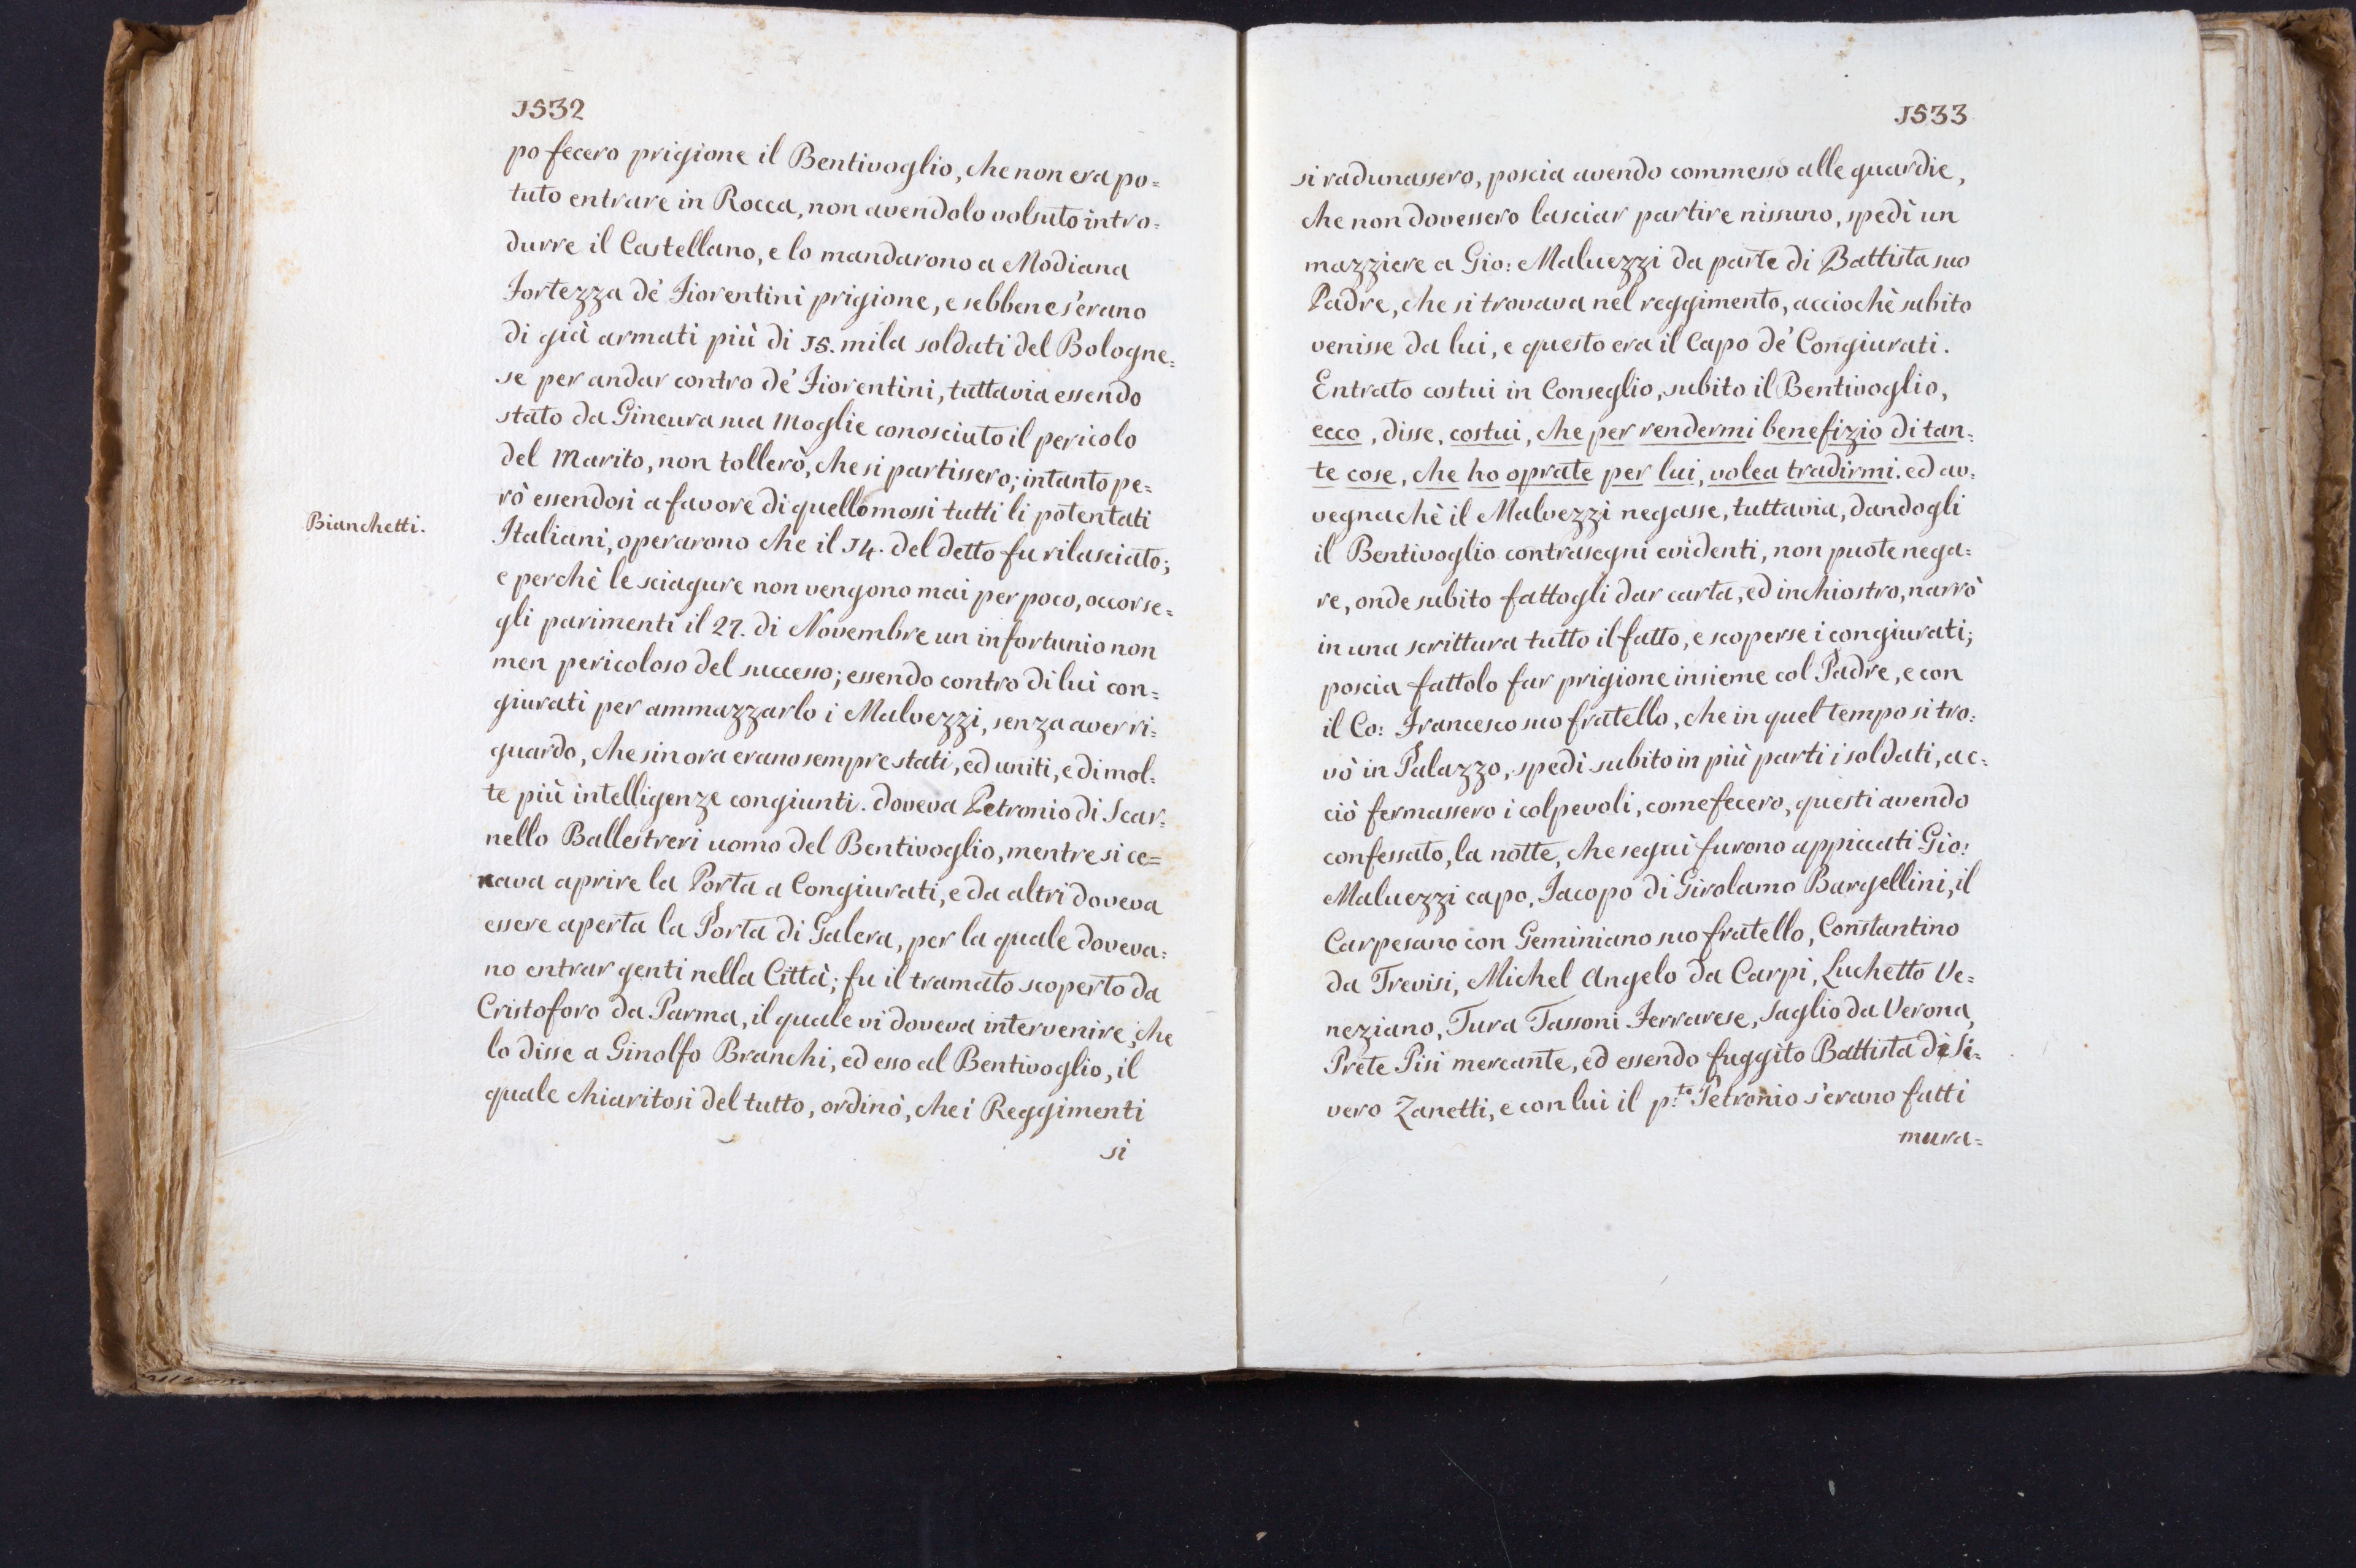 1532
po fecero prigione il Bentivoglio, che non era po=
tuto entrare in Rocca, non avendolo volsuto intro=
durre il Castellano, e lo mandarono a Modiana
Fortezza de' Fiorentini prigione, e sebbene s'erano
di già armati più di 15. mila soldati del Bologne=
se per andar contro de' Fiorentini, tuttavia essendo
stato da Gineura sua Moglie conosciuto il pericolo
del Marito, non tollerò, che si partissero; intanto pe=
rò essendosi a favore di quello mossi tutti li potentati
Bianchetti.
Italiani, operarono che il 14. del detto fu rilasciato;
e perchè le sciagure non vengono mai per poco, occorse=
gli parimenti il 27. di Novembre un infortunio non
men pericoloso del successo; essendo contro di lui con=
giurati per ammazzarlo i Malvezzi, senza aver ri=
guardo, che sin ora erano sempre stati, ed uniti, e di mol=
te più intelligenze congiunti. doveva Petronio di Scar=
nello Ballestreri uomo del Bentivoglio, mentre si ce=
nava aprire la Porta a Congiurati, e da altri doveva
essere aperta la Porta di Galera, per la quale doveva=
no entrar genti nella Città; fu il tramato scoperto da
Cristoforo da Parma, il quale vi doveva intervenire, che
lo disse a Ginolfo Branchi, ed esso al Bentivoglio, il
quale chiaritosi del tutto, ordinò, che i Reggimenti
si
1533
si radunassero, poscia avendo commesso alle guardie,
che non dovessero lasciar partire nissuno, spedì un
mazziere a Gio: Maluezzi da parte di Battista suo
Padre, che si trovava nel reggimento, acciochè subito
venisse da lui, e questo era il Capo de' Congiurati.
Entrato costui in Conseglio, subito il Bentivoglio,
ecco, disse, costui, che per rendermi benefizio di tan=
te cose, che ho oprate per lui, volea tradirmi. ed av=
vegnachè il Malvezzi negasse, tuttavia, dandogli
il Bentivoglio contrasegni evidenti, non puote nega=
re, onde subito fattogli dar carta, ed inchiostro, narrò
in una scrittura tutto il fatto, e scoperse i congiurati;
poscia fattolo far prigione insieme col Padre, e con
il Co: Francesco suo fratello, che in quel tempo si tro=
vò in Palazzo, spedì subito in più parti i soldati, ac=
ciò fermassero i colpevoli, come fecero, questi avendo
confessato, la notte, che seguì furono appiccati Gio:
Maluezzi capo, Iacopo di Girolamo Bargellini, il
Carpesano con Geminiano suo fratello, Constantino
da Trevisi, Michel Angelo da Carpi, Luchetto Ve=
neziano, Tura Tassoni Ferrarese, Saglio da Verona,
Prete Pisi mercante, ed essendo fuggito Battista di Si=
vero Zanetti, e con lui il p.to Petronio s'erano fatti
mura=